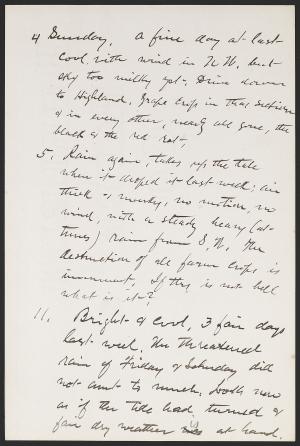 4 Sunday, a fine day at last
cool, with wind in N.W. but
sky too milky yet. Drive down
to Highland, Grape crop in that section
& in every other, nearly all gone, the
black & the red rot.
5. Rain again, takes up the tale
when it droped it last week; air
thick & murky, no motion, no
wind, with a steady heavy (at
times) rain from S.W. The
destruction of all farm crops is
imminent. If this is not hell
what is it?
11. Bright & cool, 3 fair days
last week, The threatened
rain of Friday & Saturday did
not amt to much, looks now
as if the tide had turned &
fair dry weather is at hand.